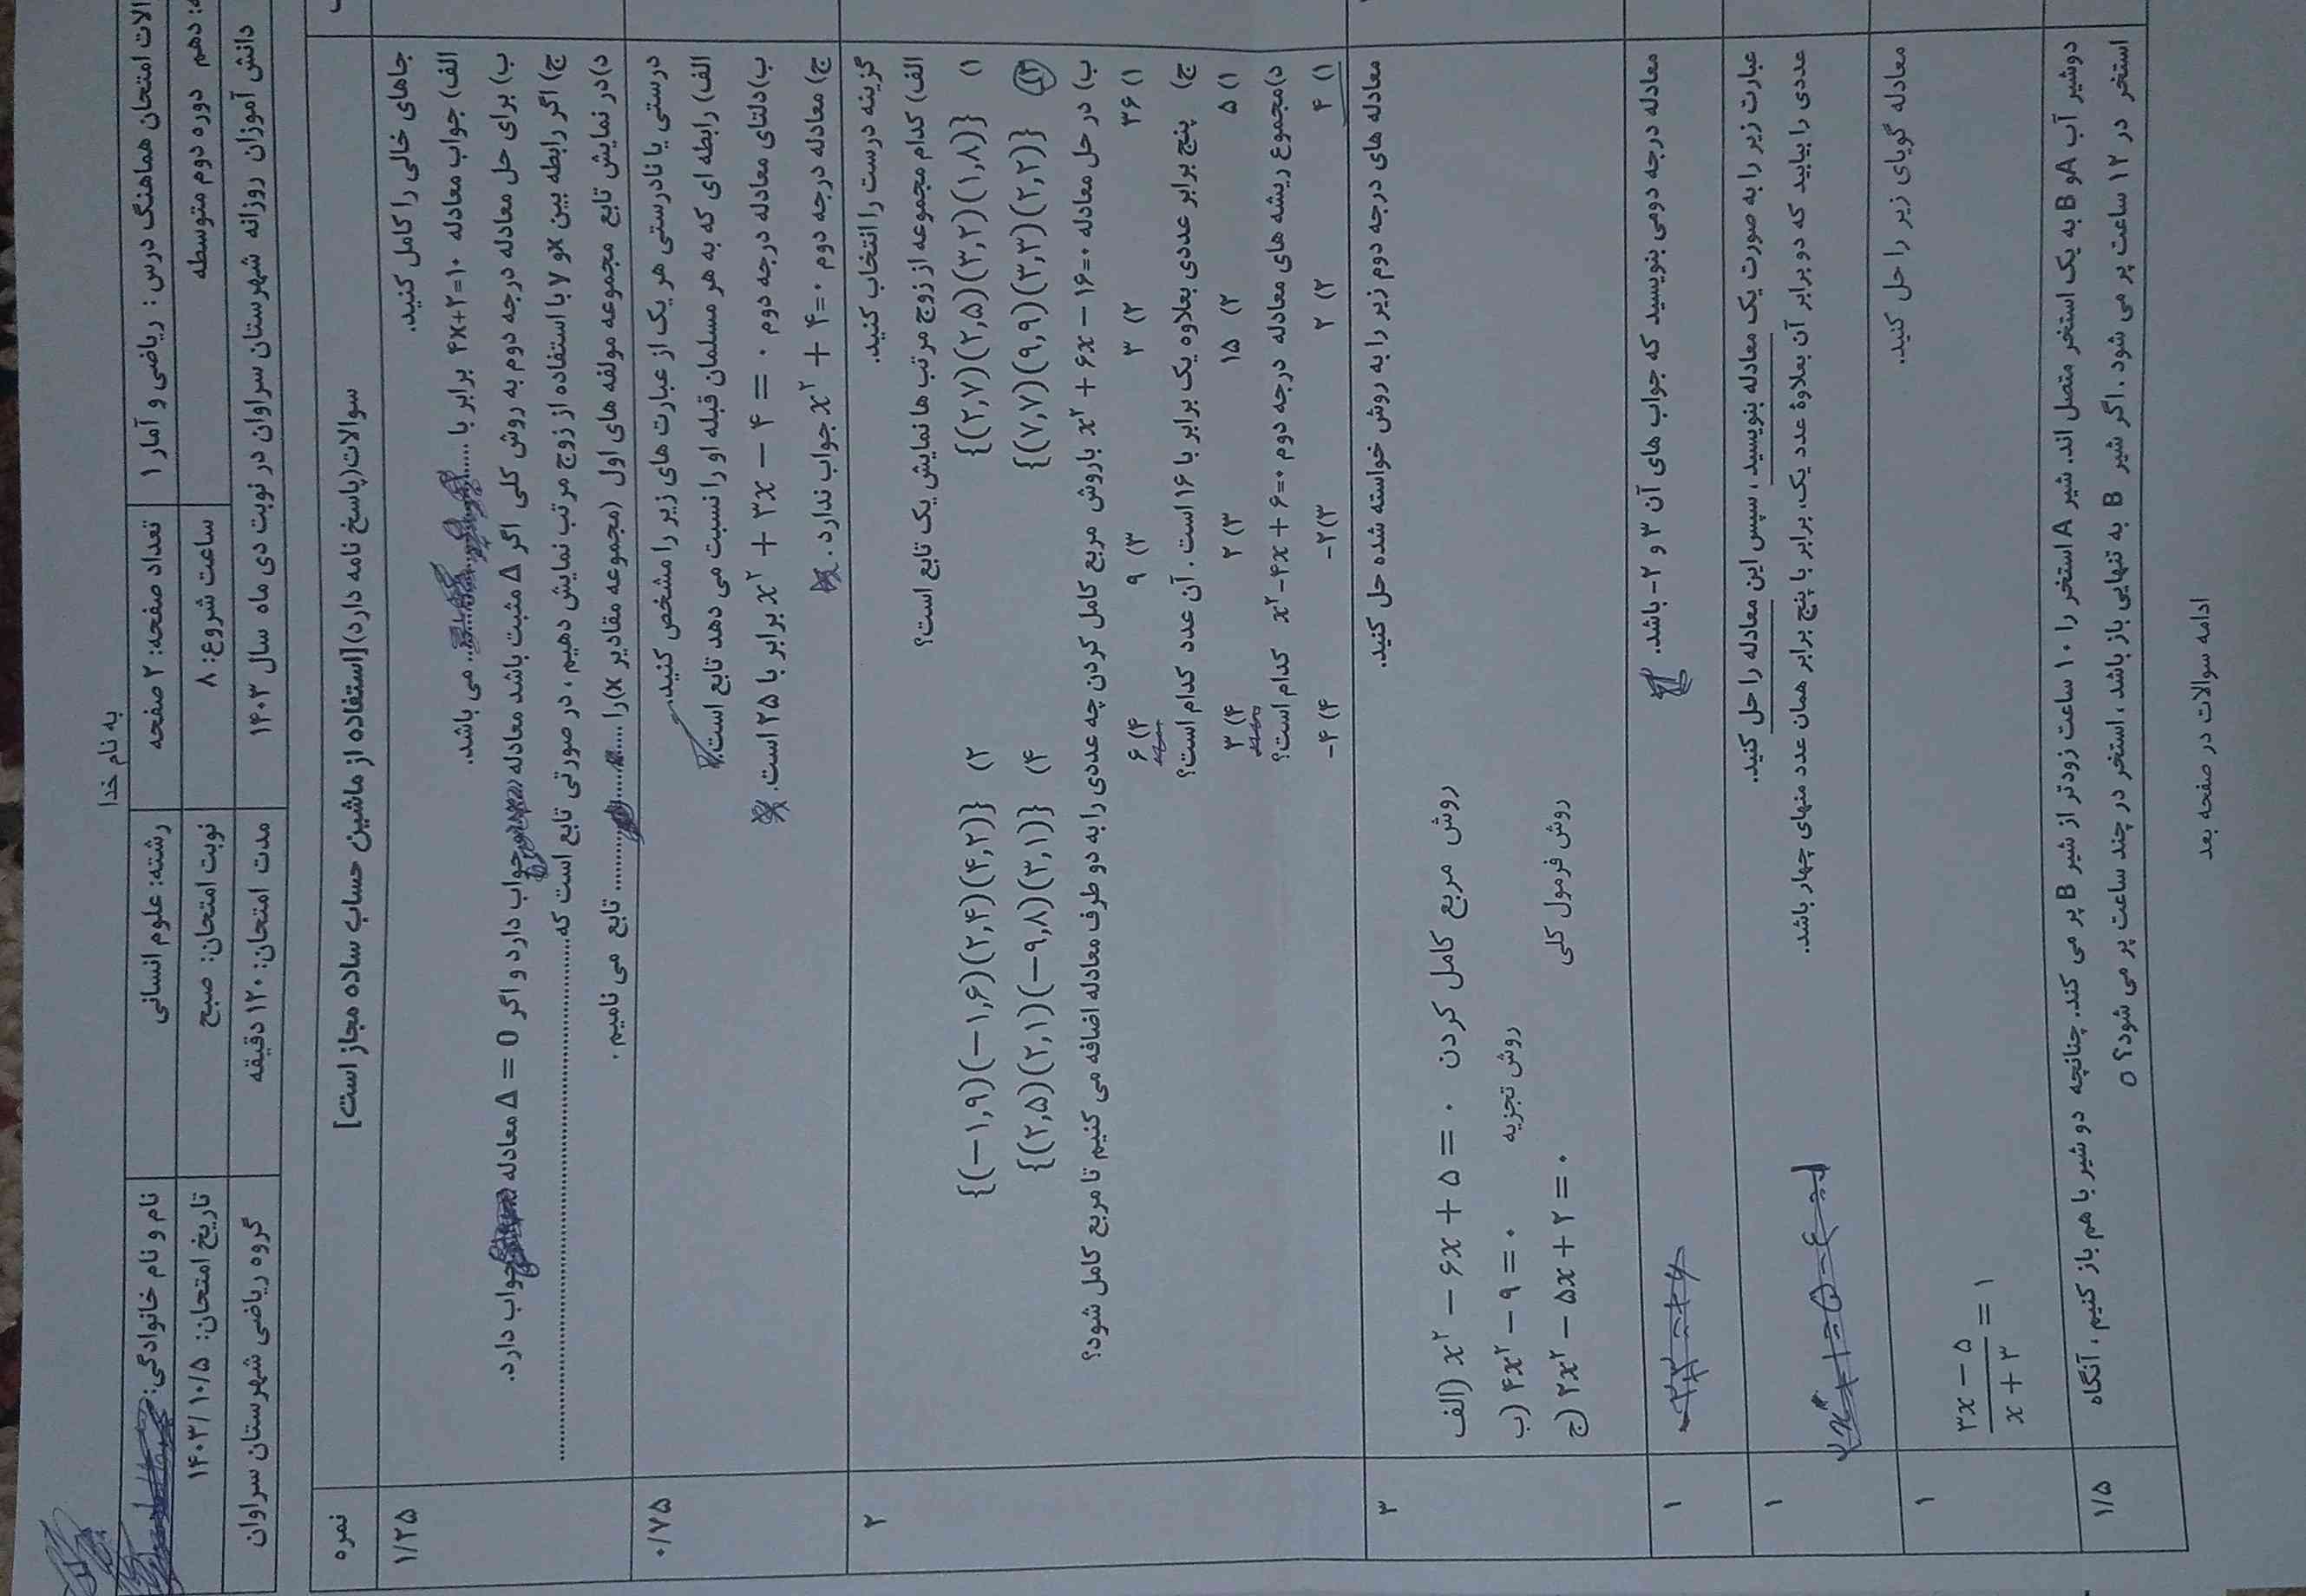 به نام خدا
الات امتحان هماهنگ درس : ریاضی و آمار ۱ تعداد صفحه: ۲ صفحه رشته: علوم انسانی نام و نام خانوادگی:
: دهم دوره دوم متوسطه ساعت شروع: ۸ نوبت امتحان: صبح تاریخ امتحان: ۱۴۰۳/۱۰/۵
دانش آموزان روزانه شهرستان سراوان در نوبت دی ماه سال ۱۴۰۳ مدت امتحان: ۱۲۰ دقیقه گروه ریاضی شهرستان سراوان
سوالات(پاسخ نامه دارد)[استفاده از ماشین حساب ساده مجاز است] نمره
جاهای خالی را کامل کنید. ۱/۲۵
الف) جواب معادله ۴x+۲=۱۰ برابر با ........ می باشد.
ب) برای حل معادله درجه دوم به روش کلی اگر Δ مثبت باشد معادله جواب دارد و اگر Δ = 0 معادله جواب دارد.
ج) اگر رابطه بین x و y با استفاده از زوج مرتب نمایش دهیم ، در صورتی تابع است که ........
د) در نمایش تابع مجموعه مولفه های اول (مجموعه مقادیر x) را ........ تابع می نامیم .
درستی یا نادرستی هر یک از عبارت های زیر را مشخص کنید. ۰/۷۵
الف) رابطه ای که به هر مسلمان قبله او را نسبت می دهد تابع است.
ب) دلتای معادله درجه دوم x² + ۳x − ۴ = ۰ برابر با ۲۵ است.
ج) معادله درجه دوم x² + ۴=۰ جواب ندارد.
گزینه درست را انتخاب کنید. ۲
الف) کدام مجموعه از زوج مرتب ها نمایش یک تابع است؟
۱) {(۲,۷)(۲,۵)(۳,۲)(۱,۸)} ۲) {(−۱,۹)(−۱,۶)(۲,۴)(۴,۲)}
۳) {(۷,۷)(۹,۹)(۳,۳)(۲,۲)} ۴) {(۲,۵)(۲,۱)(−۹,۸)(۳,۱)}
ب) در حل معادله x² + ۶x − ۱۶=۰ باروش مربع کامل کردن چه عددی را به دو طرف معادله اضافه می کنیم تا مربع کامل شود؟
۱) ۳۶ ۲) ۳ ۳) ۹ ۴) ۶
ج) پنج برابر عددی بعلاوه یک برابر با ۱۶ است . آن عدد کدام است؟
۱) ۵ ۲) ۱۵ ۳) ۲ ۴) ۳
د) مجموع ریشه های معادله درجه دوم x²−۴x + ۶=۰ کدام است؟
۱) ۴ ۲) ۲ ۳) −۲ ۴) −۴
معادله های درجه دوم زیر را به روش خواسته شده حل کنید. ۳
الف) x² − ۶x + ۵ = ۰ روش مربع کامل کردن
ب) ۴x² − ۹ = ۰ روش تجزیه
ج) ۲x² − ۵x + ۲ = ۰ روش فرمول کلی
معادله درجه دومی بنویسید که جواب های آن ۳ و ۲- باشد. ۱
عبارت زیر را به صورت یک معادله بنویسید، سپس این معادله را حل کنید. ۱
عددی را بیابید که دو برابر آن بعلاوهٔ عدد یک، برابر با پنج برابر همان عدد منهای چهار باشد.
معادله گویای زیر را حل کنید. ۱
(۳x − ۵)/(x + ۳) = ۱
دوشیر آب A و B به یک استخر متصل اند. شیر A استخر را ۱۰ ساعت زودتر از شیر B پر می کند. چنانچه دو شیر با هم باز کنیم ، آنگاه ۱/۵
استخر در ۱۲ ساعت پر می شود . اگر شیر B به تنهایی باز باشد ، استخر در چند ساعت پر می شود؟
ادامه سوالات در صفحه بعد